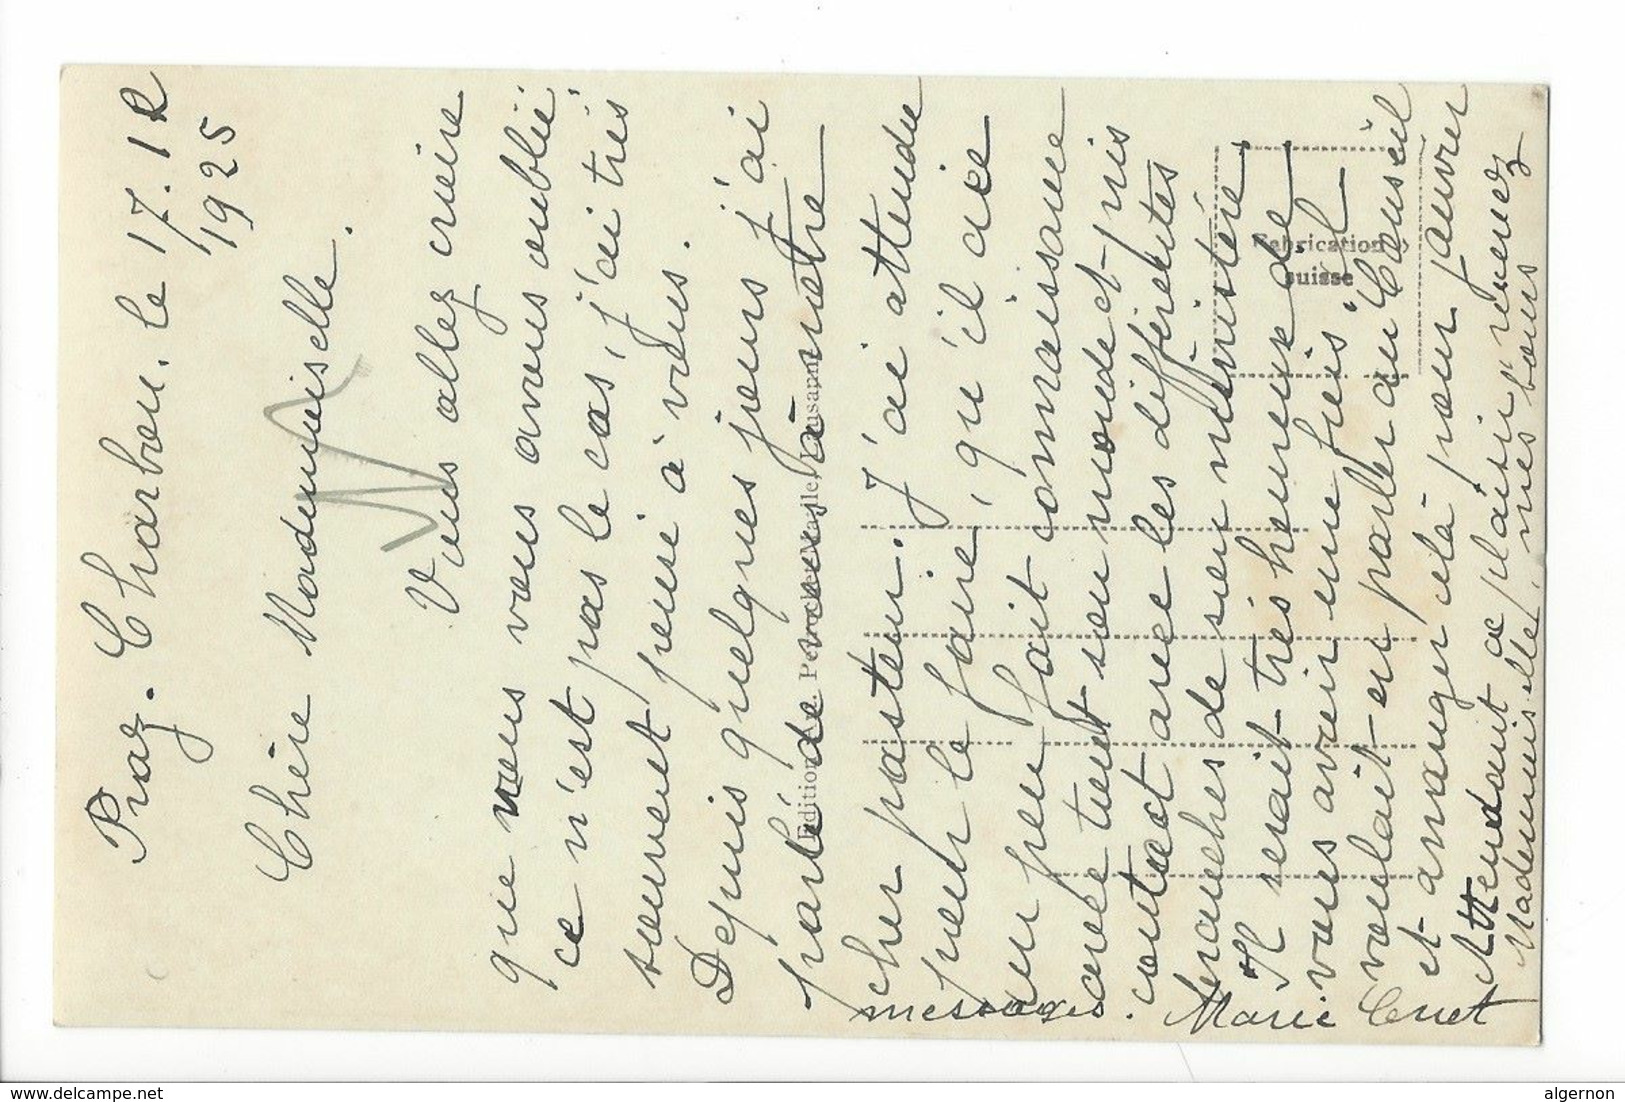 Praz. Charbon. le 17. 12
1925
Chère Mademoiselle.
Vous allez croire
que nous vous avons oublié
ce n'est pas le cas, j'ai très
souvent pensé à vous.
Depuis quelques jours j'ai
parlé de vous, à notre
cher pasteur. J'ai attendu
pour le faire, qu'il aie
un peu fait connaissance
avec tout son monde et pris
contact avec les différentes
branches de son ministère
Il serait très heureux de
vous avoir une fois. Il
voulait en parler au Conseil
et arranger cela pour janvier
Attendant ce plaisir recevez
Mademoiselle, mes bons
messages. Marie Cruet
Edition Perrochet Lausanne
Fabrication
suisse
algernon